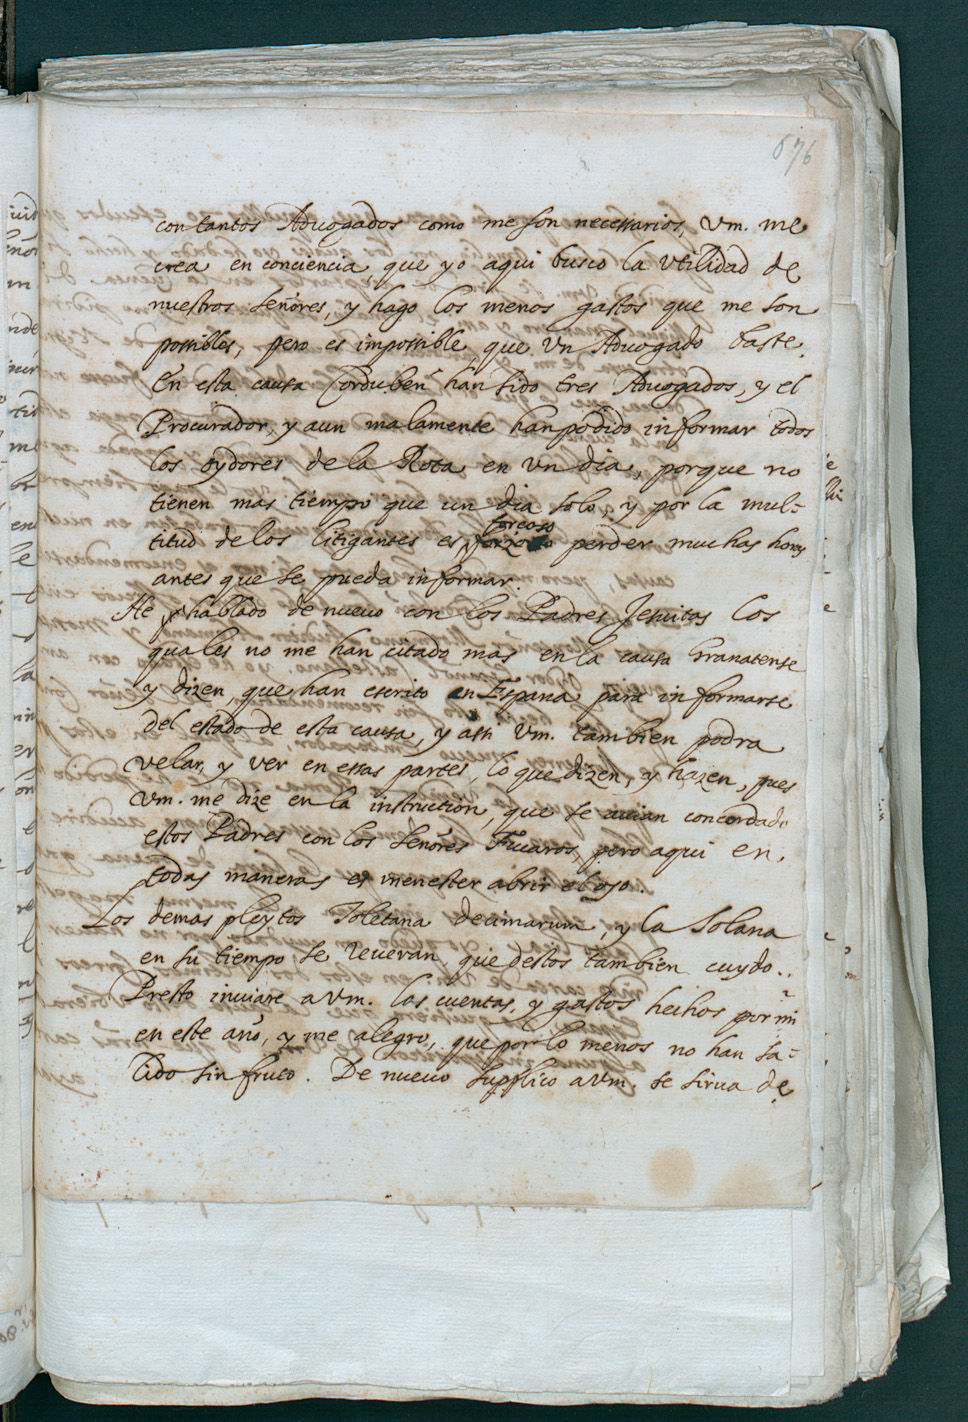 676
con tantos Advogados como me son necessarios, Vm. me
crea en conciencia que yo aqui busco la utilidad de
nuestros señores, y hago los menos gastos que me son
possibles, pero es impossible que un Advogado baste.
En esta causa Corduben. han sido tres Advogados, y el
Procurador, y aun malamente han podido informar todos
los oydores de la Rota en un dia, porque no
tienen mas tiempo que un dia solo, y por la mul-
titud de los litigantes es forçoso perder muchas horas
antes que se pueda informar.
He hablado de nuevo con los Padres Jesuitas los
quales no me han citado mas en la causa Granatense
y dizen, que han escrito en España para informarse
del estado de esta causa, y assi Vm. tambien podra
velar, y ver en essas partes, lo que dizen, y hazen, pues
Vm. me dize en la instrucion, que se avian concordado
estos Padres con los señores Fucaros, pero aqui en
todas maneras es menester abrir el ojo.
Los demas pleytos Toletana decimarum, y la Solana
en su tiempo se veveran, que destos tambien cuydo.
Presto inviare a Vm. las cuentas, y gastos hechos por mi
en este año, y me alegro, que por lo menos no han sa-
lido sin fruto. De nuevo supplico a Vm. se sirva de